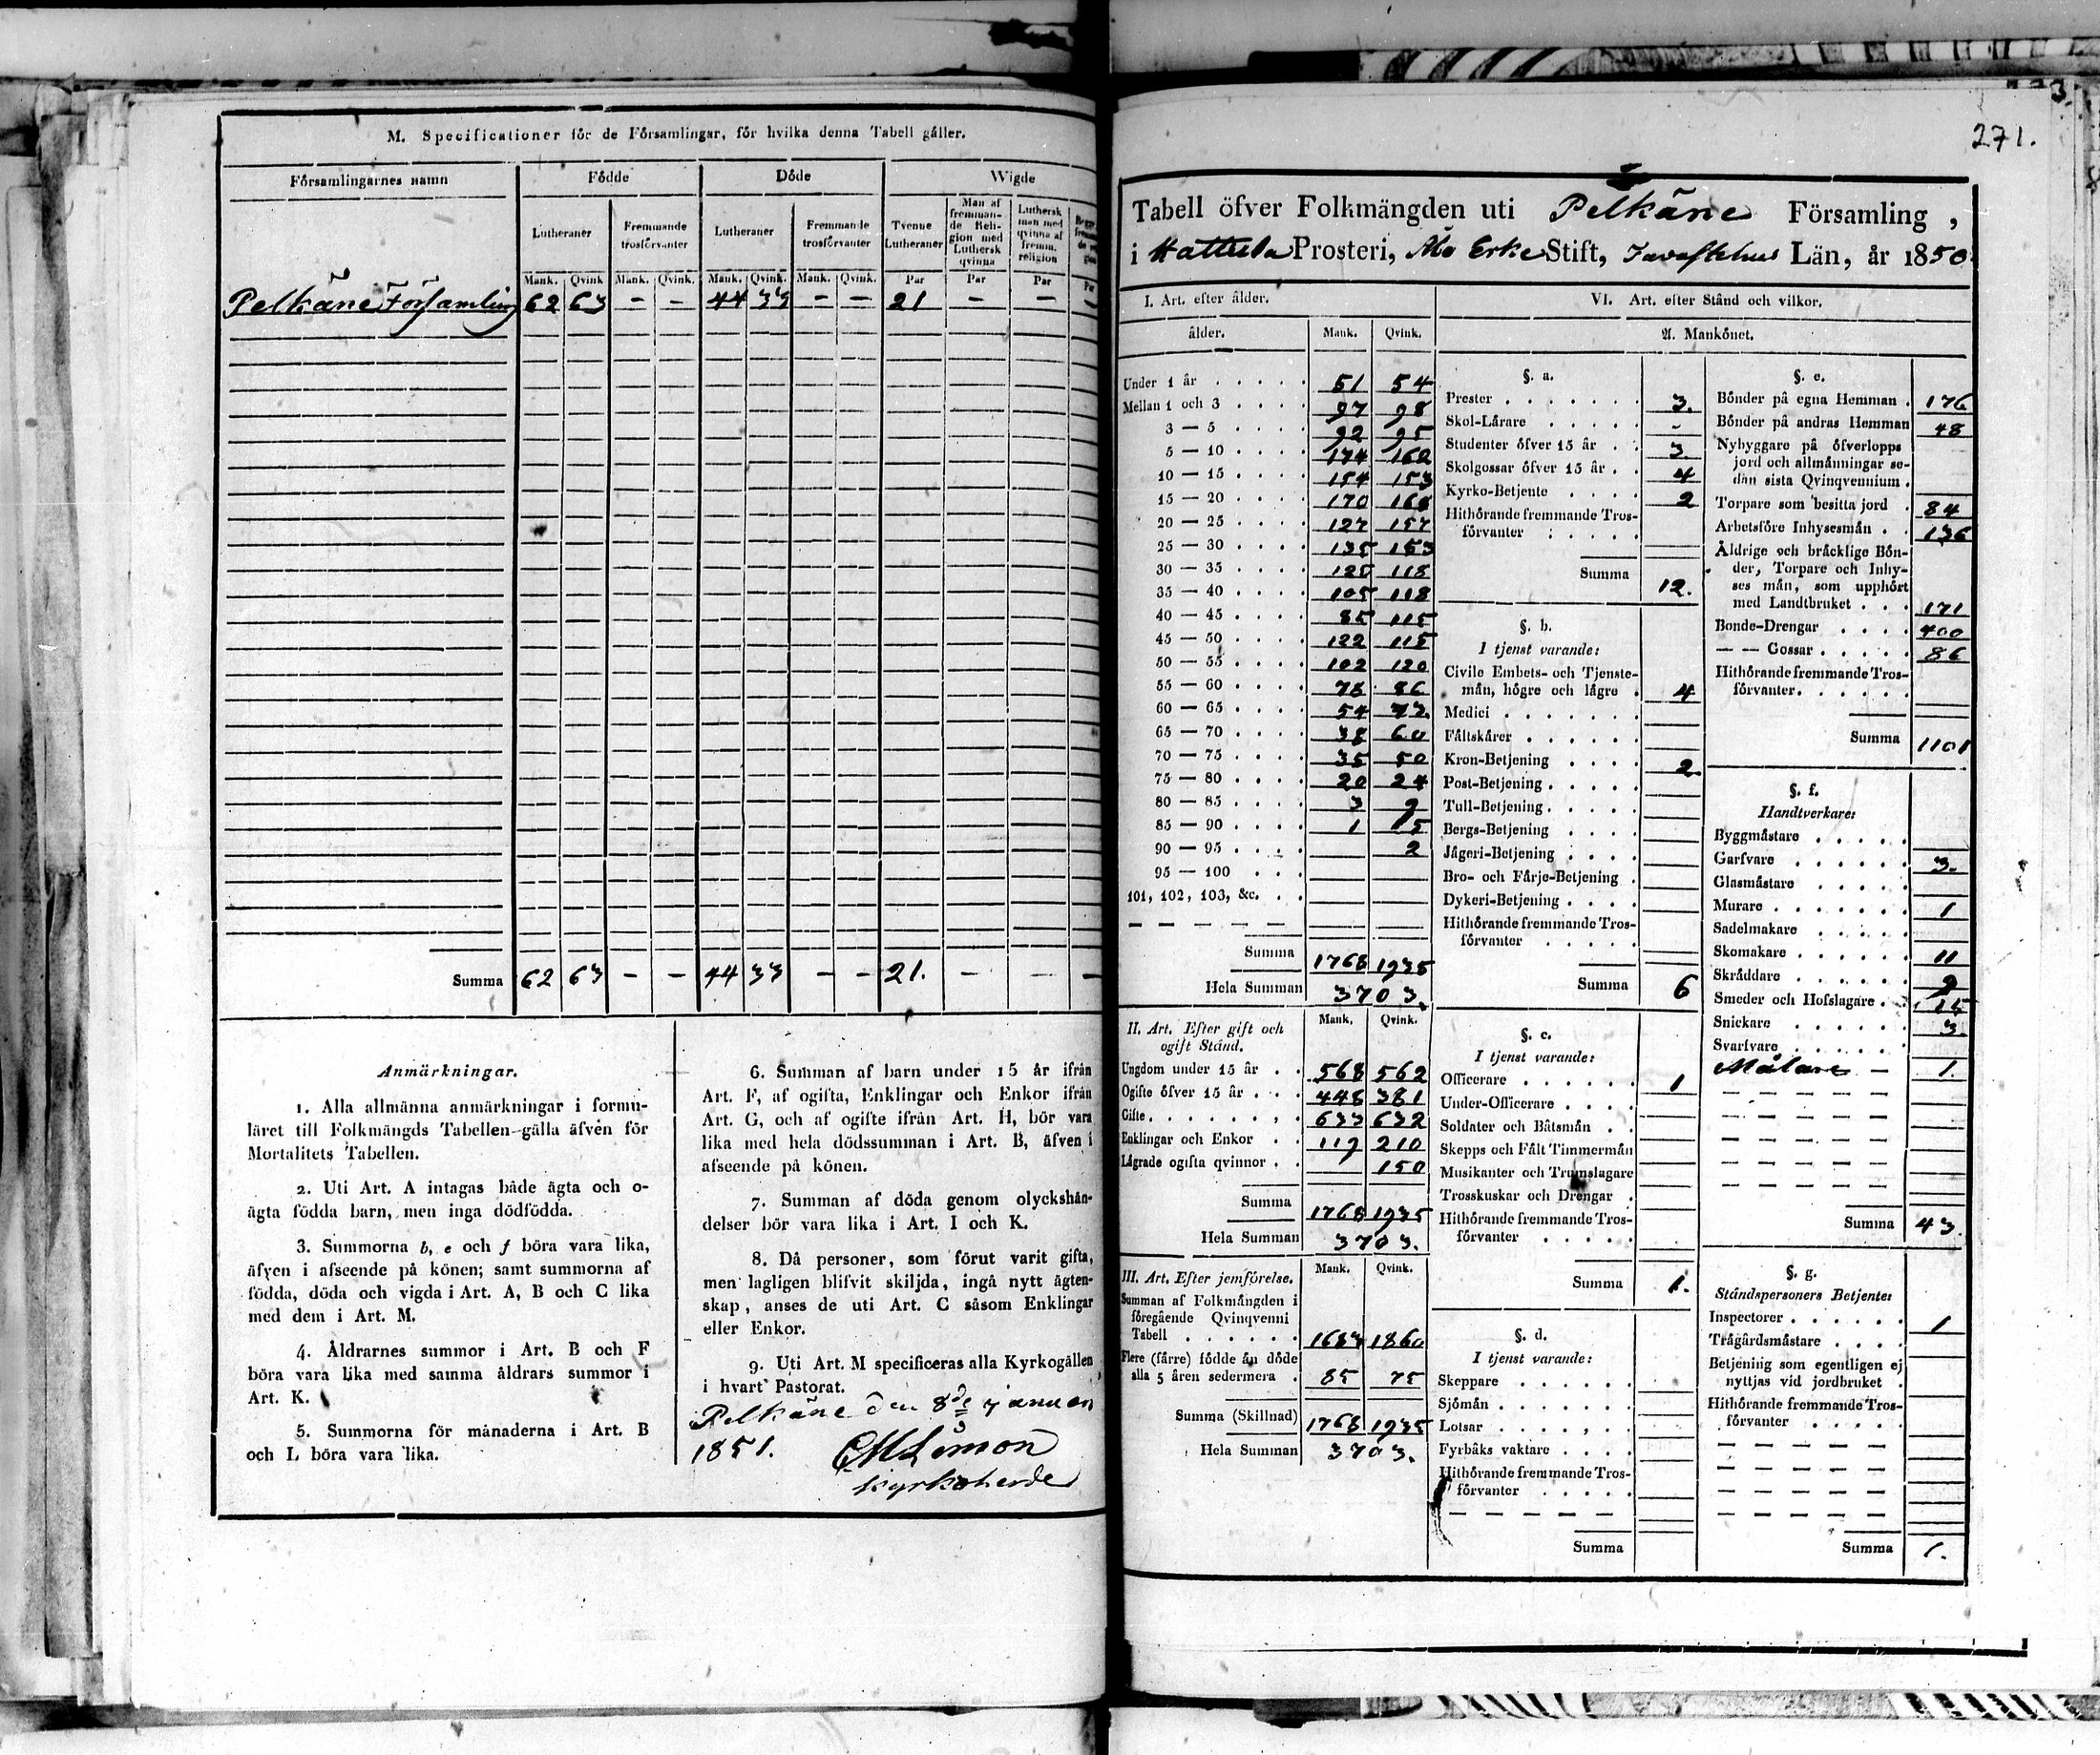 M. Specificationer för de Församlingar, för hvilka denna Tabell gäller.
Församlingarnes namn Födde Döde Wigde
Lutheraner Fremmande trosförvanter Lutheraner Fremmande trosförvanter Tvenne Lutheraner Man af fremmande Religion med Luthersk qvinna Luthersk man med qvinna af fremm. religion
Mank. Qvink Mank. Qvink. Mank. Qvink. Mank. Qvink. Par Par Par
Pelkäne Församling 62 63 – – 44 33 – – 21 – –
Summa 62 63 – – 44 33 – – 21. – – –
Anmärkningar.
1. Alla allmänna anmärkningar i formu-
läret till Folkmängds Tabellen gälla äfven för
Mortalitets Tabellen.
2. Uti Art. A intagas både ägta och o-
ägta födda barn, men inga dödfödda.
3. Summorna b, e och f böra vara lika,
äfven i afseende på könen; samt summorna af
födda, döda och vigda i Art. A, B och C lika
med dem i Art. M.
4. Åldrarnes summor i Art. B och F
böra vara lika med samma åldrars summor i
Art. K.
5. Summorna för månaderna i Art. B
och L böra vara lika.
6. Summan af barn under 15 år ifrån
Art. F, af ogifta, Enklingar och Enkor ifrån
Art. G, och af ogifte ifrån Art. H, bör vara
lika med hela dödssumman i Art. B, äfven i
afseende på könen.
7. Summan af döda genom olyckshän-
delser bör vara lika i Art. I och K.
8. Då personer, som förut varit gifta,
men lagligen blifvit skiljda, ingå nytt ägten-
skap, anses de uti Art. C såsom Enklingar
eller Enkor.
9. Uti Art. M specificeras alla Kyrkogällen
i hvart Pastorat.
Pelkäne den 8de Januari
1851.
Kyrkoherde
271.
Tabell öfver Folkmängden uti Pelkäne Församling,
i Hattula Prosteri, Åbo Erke Stift, Tavastehus Län, år 1850
I. Art. efter ålder.
ålder. Mank. Qvink.
Under 1 år 51 54
Mellan 1 och 3 97 98
3 — 5 92 95
5 — 10 174 162
10 — 15 154 153
15 — 20 170 168
20 — 25 127 157
25 — 30 135 153
30 — 35 125 118
35 — 40 105 118
40 — 45 85 115
45 — 50 122 115
50 — 55 102 120
55 — 60 78 86
60 — 65 54 73
65 — 70 38 60
70 — 75 35 50
75 — 80 20 24
80 — 85 3 9
85 — 90 1 5
90 — 95 2
95 — 100
101, 102, 103, &c.
Summa 1768 1935
Hela Summan 3703.
II. Art. Efter gift och
ogift Stånd. Mank. Qvink.
Ungdom under 15 år 568 562
Ogifte öfver 15 år 448 381
Gifte 633 632
Enklingar och Enkor 119 210
Lägrade ogifta qvinnor 150
Summa 1768 1935
Hela Summan 3703.
III. Art. Efter jemförelse. Mank. Qvink.
Summan af Folkmängden i
föregående Qvinqvenni
Tabell 1683 1860
Flere (färre) födde än döde
alla 5 åren sedermera 85 75
Summa (Skillnad) 1768 1935
Hela Summan 3703.
VI. Art. efter Stånd och vilkor.
A. Mankönet.
§. a.
Prester 3.
Skol-Lärare -
Studenter öfver 15 år 3
Skolgossar öfver 15 år 4
Kyrko-Betjente 2
Hithörande fremmande Tros-
förvanter
Summa 12.
§. b.
I tjenst varande:
Civile Embets- och Tjenste-
män, högre och lägre 4
Medici
Fältskärer
Kron-Betjening 2.
Post-Betjening
Tull-Betjening
Bergs-Betjening
Jägeri-Betjening
Bro- och Färje-Betjening
Dykeri-Betjening
Hithörande fremmande Tros-
förvanter
Summa 6
§. c.
I tjenst varande:
Officerare 1
Under-Officerare
Soldater och Båtsmän
Skepps och Fält Timmermän
Musikanter och Trumslagare
Trosskuskar och Drengar
Hithörande fremmande Tros-
förvanter
Summa 1.
§. d.
I tjenst varande:
Skeppare
Sjömän
Lotsar
Fyrbåks vaktare
Hithörande fremmande Tros-
förvanter
Summa
§. e.
Bönder på egna Hemman 176
Bönder på andras Hemman 48
Nybyggare på öfverlopps
jord och allmänningar se-
dan sista Qvinqvennium
Torpare som besitta jord 84
Arbetsföre Inhysesmän 136
Åldrige och bräcklige Bön-
der, Torpare och Inhy-
ses män, som upphört
med Landtbruket 171
Bonde-Drengar 400
— — Gossar 86
Hithörande fremmande Tros-
förvanter
Summa 1101
§. f.
Handtverkare:
Byggmästare
Garfvare 3.
Glasmästare
Murare 1
Sadelmakare
Skomakare 11
Skräddare 9
Smeder och Hofslagare 15
Snickare 3.
Svarfvare
Målare — 1.
Summa 43.
§. g.
Ståndspersoners Betjente:
Inspectorer 1
Trägårdsmästare
Betjening som egentligen ej
nyttjas vid jordbruket
Hithörande fremmande Tros-
förvanter
Summa 1.